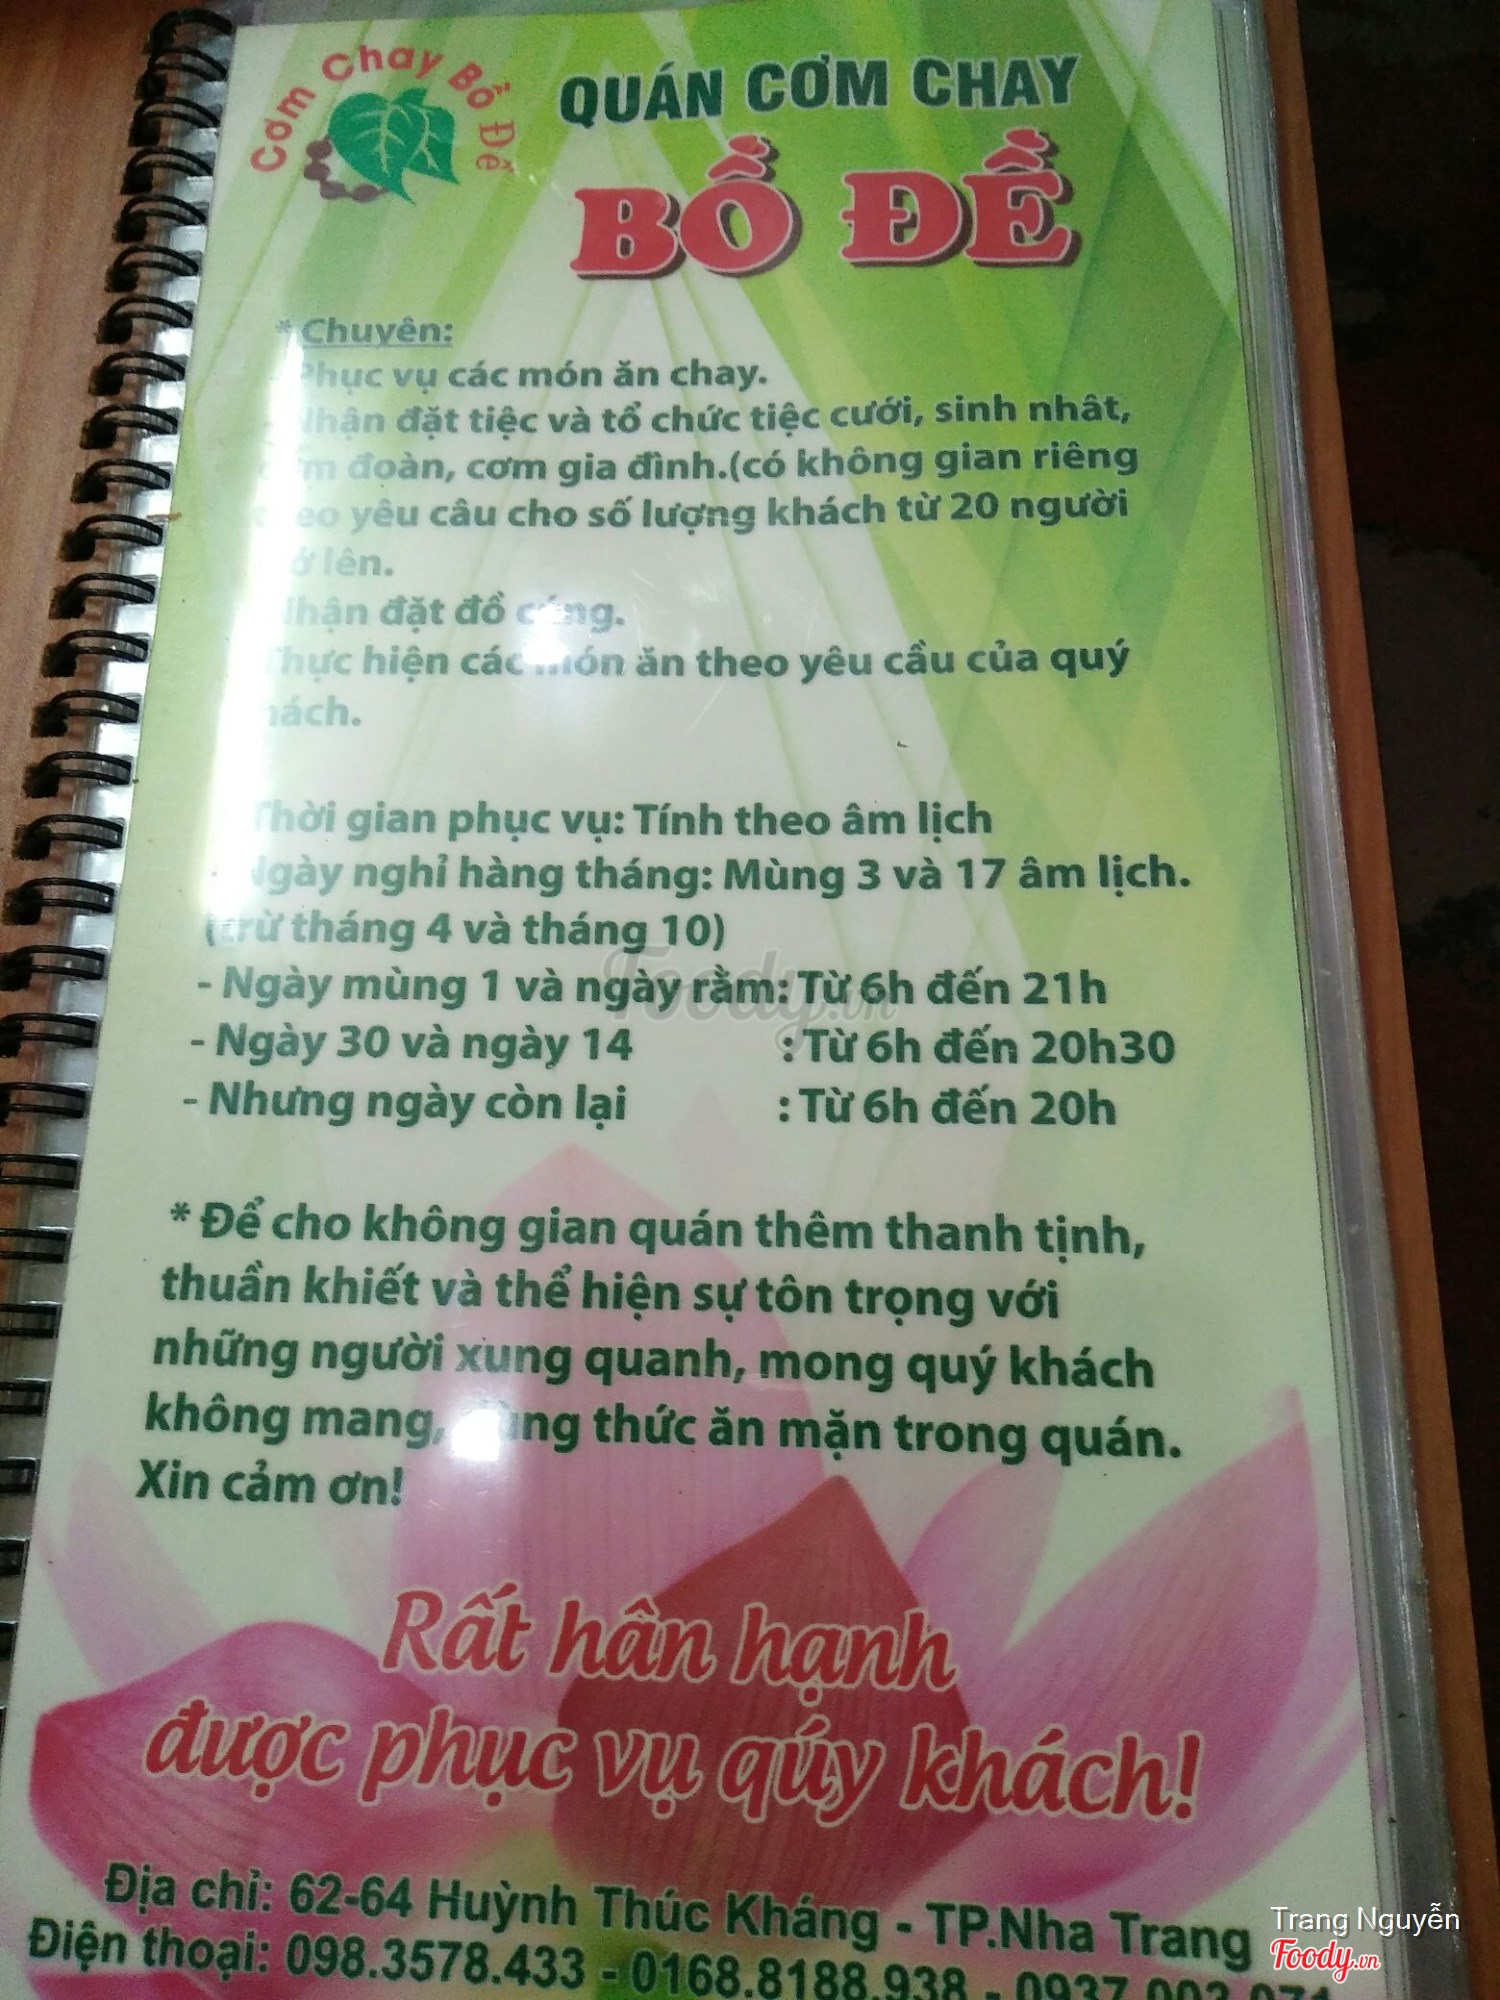 Cơm Chay Bồ Đề
QUÁN CƠM CHAY
BỒ ĐỀ
* Chuyên:
Phục vụ các món ăn chay.
Nhận đặt tiệc và tổ chức tiệc cưới, sinh nhât,
đoàn, cơm gia đình.(có không gian riêng
yêu câu cho số lượng khách từ 20 người
lên.
Nhận đặt đồ cúng.
Thực hiện các món ăn theo yêu cầu của quý
khách.
Thời gian phục vụ: Tính theo âm lịch
Ngày nghỉ hàng tháng: Mùng 3 và 17 âm lịch.
(trừ tháng 4 và tháng 10)
- Ngày mùng 1 và ngày rằm: Từ 6h đến 21h
- Ngày 30 và ngày 14 : Từ 6h đến 20h30
- Nhưng ngày còn lại : Từ 6h đến 20h
* Để cho không gian quán thêm thanh tịnh,
thuần khiết và thể hiện sự tôn trọng với
những người xung quanh, mong quý khách
không mang, dùng thức ăn mặn trong quán.
Xin cảm ơn!
Rất hân hạnh
được phục vụ qúy khách!
Địa chỉ: 62-64 Huỳnh Thúc Kháng - TP.Nha Trang
Điện thoại: 098.3578.433 - 0168.8188.938 -
Foody.vn
Trang Nguyễn
Foody.vn